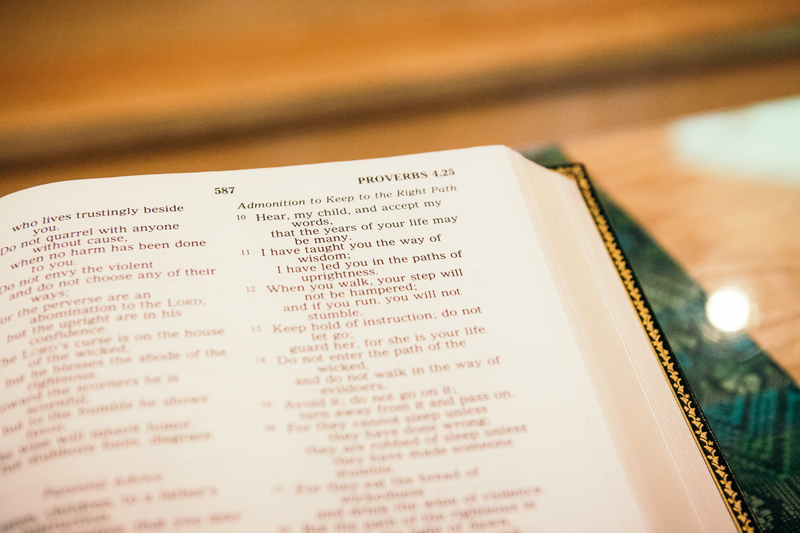 587
PROVERBS 4.25
who lives trustingly beside
you.
Do not quarrel with anyone
without cause,
when no harm has been done
to you.
Do not envy the violent
and do not choose any of their
ways;
or the perverse are an
abomination to the LORD,
but the upright are in his
confidence.
he LORD's curse is on the house
of the wicked,
but he blesses the abode of the
righteous.
toward the scorners he is
scornful,
but to the humble he shows
favor.
he wise will inherit honor,
but stubborn fools, disgrace.
Parental Advice
children, to a father's
Admonition to Keep to the Right Path
10 Hear, my child, and accept my
words,
that the years of your life may
be many.
11 I have taught you the way of
wisdom;
I have led you in the paths of
uprightness.
12 When you walk, your step will
not be hampered;
and if you run, you will not
stumble.
13 Keep hold of instruction; do not
let go;
guard her, for she is your life.
14 Do not enter the path of the
wicked,
and do not walk in the way of
evildoers.
15 Avoid it; do not go on it;
turn away from it and pass on.
16 For they cannot sleep unless
they have done wrong;
they are robbed of sleep unless
they have made someone
stumble.
17 For they eat the bread of
wickedness
and drink the wine of violence
18 But the path of the righteous is